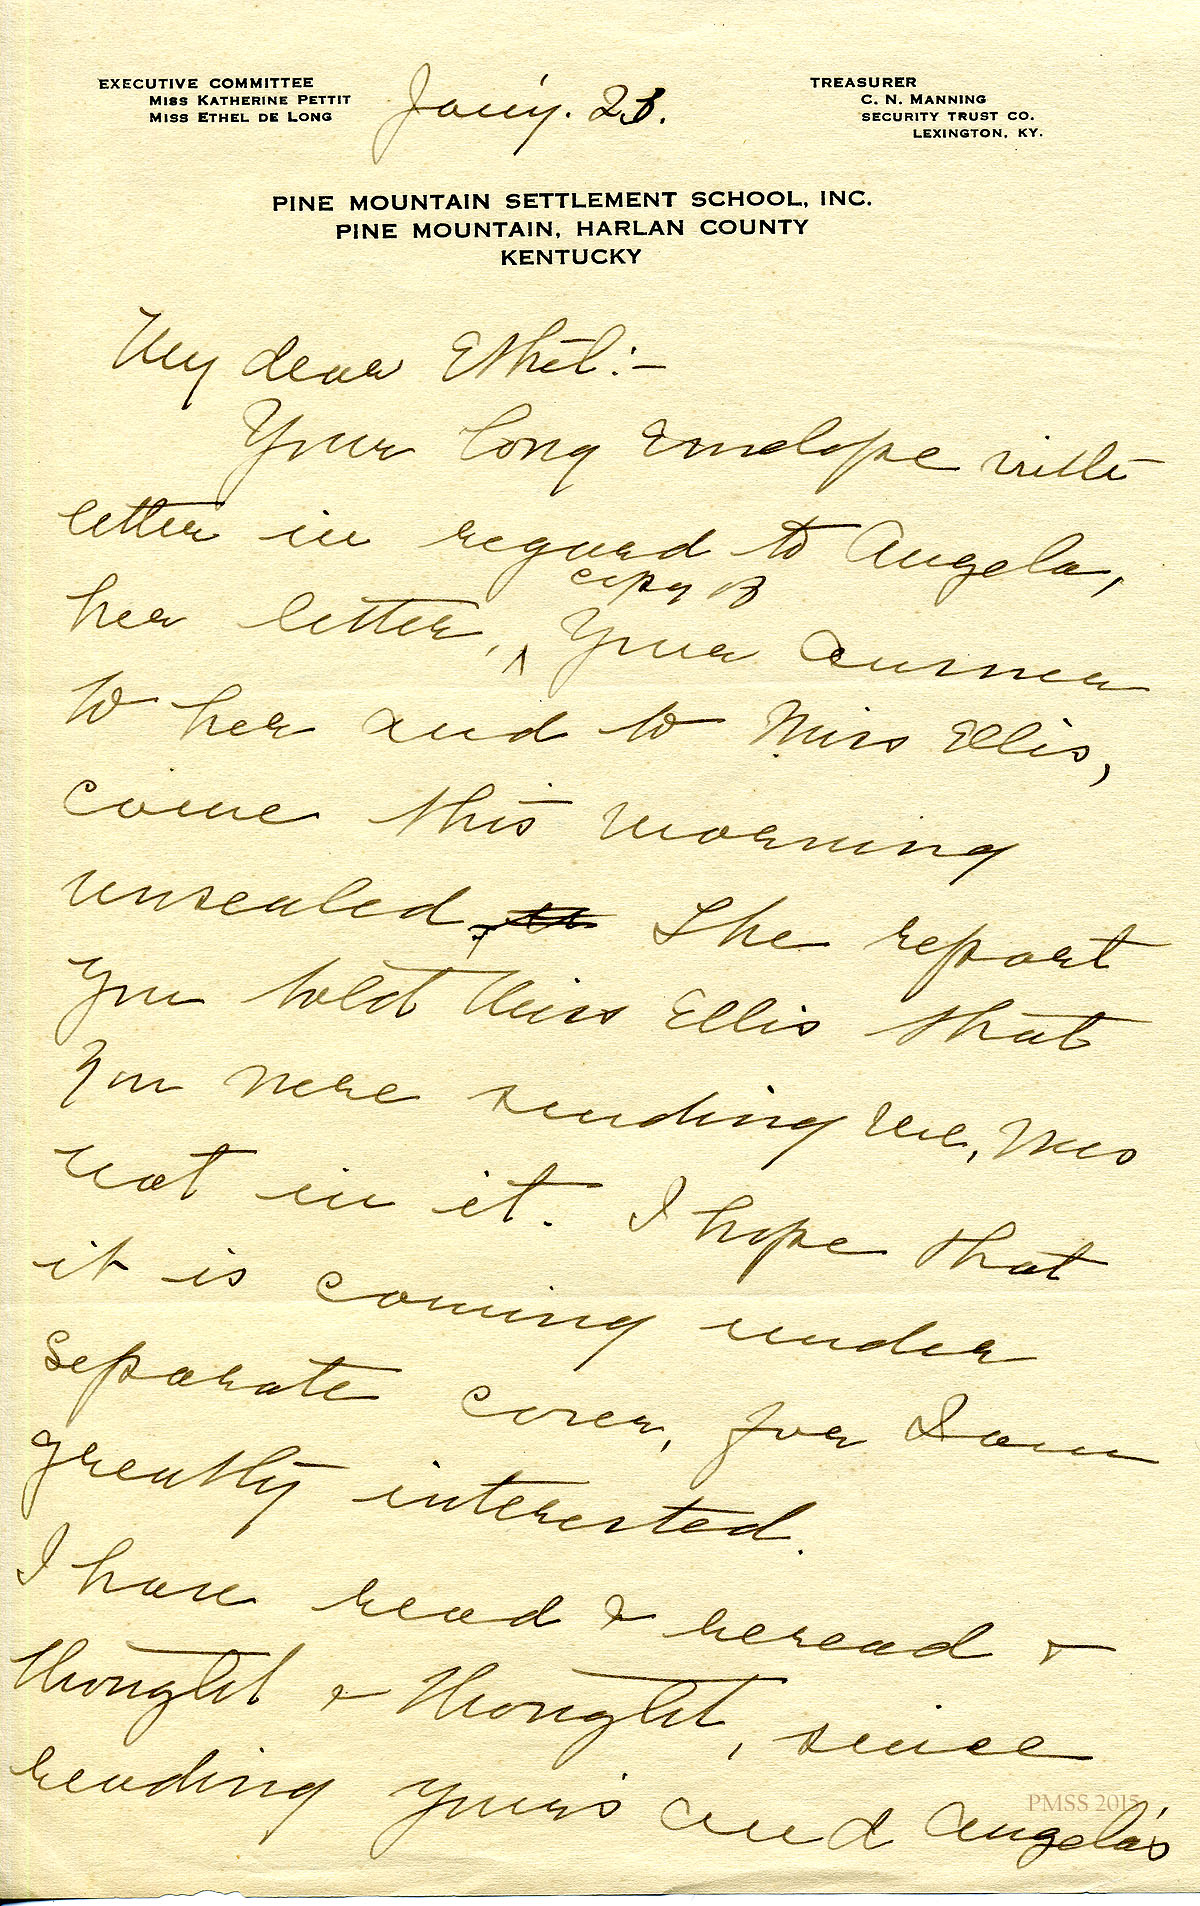 EXECUTIVE COMMITTEE
MISS KATHERINE PETTIT
MISS ETHEL DE LONG
Jan'y.
TREASURER
C. N. MANNING
SECURITY TRUST CO.
LEXINGTON, KY.
PINE MOUNTAIN SETTLEMENT SCHOOL, INC.
PINE MOUNTAIN, HARLAN COUNTY
KENTUCKY
My dear Ethel:-
Your long envelope with
letter in regard to Angela,
copy of
her letter, ^ your answer
to her and to Miss Ellis,
came this morning
unsealed. The report
you told Miss Ellis that
you were sending me, was
not in it. I hope that
it is coming under
separate cover, for I am
greatly interested.
I have read & reread &
thought & thought, since
reading yours and Angela's
PMSS 2015